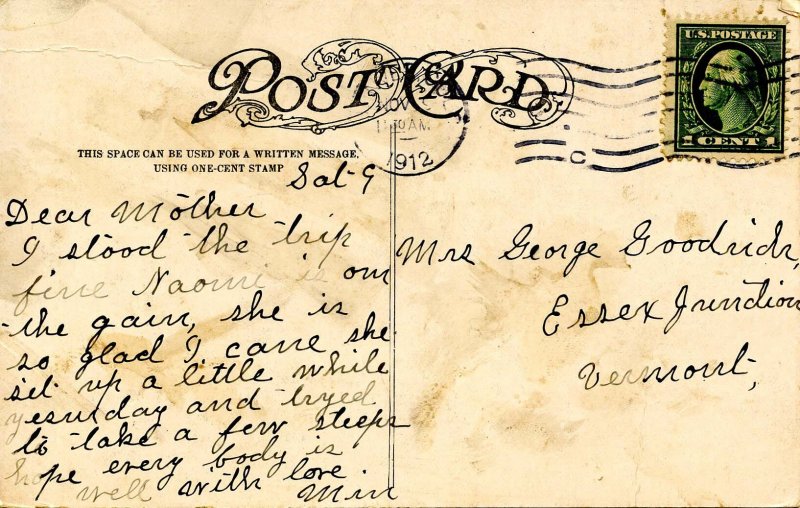 POST CARD
NOV
10 AM
1912
U.S. POSTAGE
1 CENT 1
C
THIS SPACE CAN BE USED FOR A WRITTEN MESSAGE,
USING ONE-CENT STAMP
Sat 9
Dear Mother
I stood the trip
fine Naomi is on
the gain, she is
so glad I cane she
set up a little while
yesurday and tryed
to take a few steeps
hope every body is
well with love
Min
Mrs George Goodrich,
Essex Junction
Vermont,